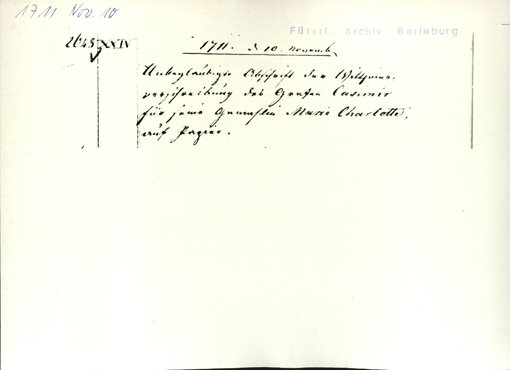 1711 Nov. 10
Fürstl. Archiv Berleburg
2645 XXIV
1711. d 10. Novemb.
Unbeglaubigte Abschrift der Witthums-
verschreibung des Grafen Casimir
für seine Gemahlin Marie Charlotte,
auf Papier.